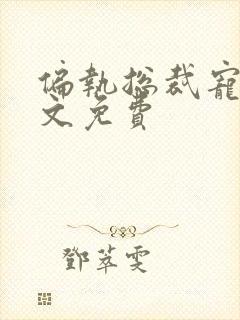 偏執總裁寵
文免費
鄧萃雯